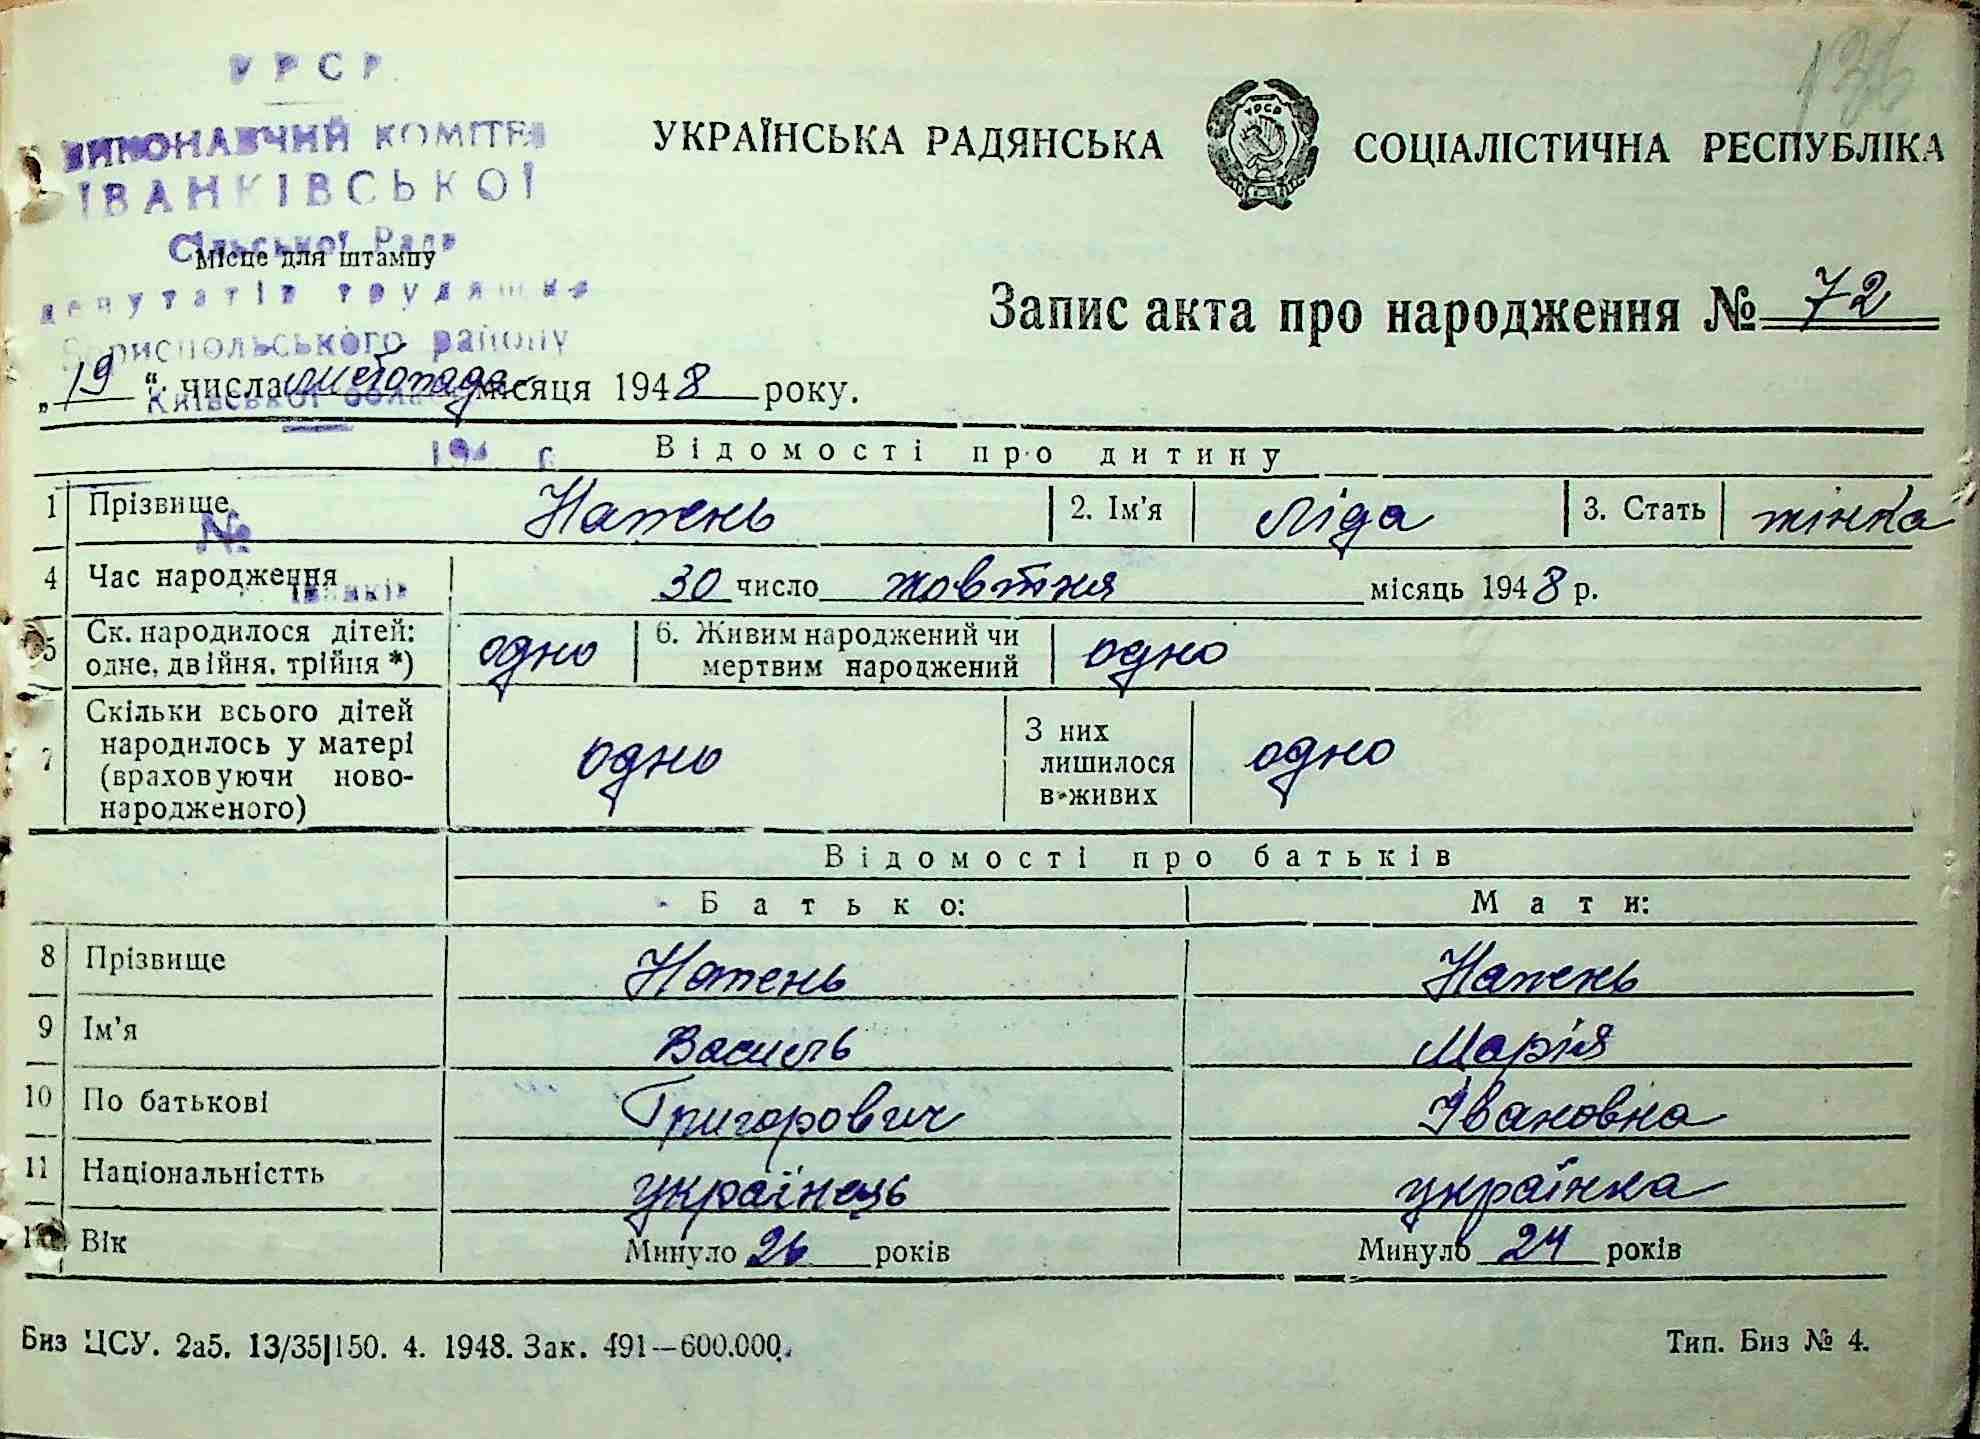 УРСР
136
ВИКОНАВЧИЙ КОМІТЕТ
УКРАЇНСЬКА РАДЯНСЬКА СОЦІАЛІСТИЧНА РЕСПУБЛІКА
УРСР
ІВАНКІВСЬКОЇ
Сільської Ради
Місце для штампу
депутатів трудящих
Запис акта про народження № 72
Бориспольського району
„19“ числа листопада місяця 1948 року.
Київської області
194 г.
Відомості про дитину
1 Прізвище Натень 2. Ім'я Ліда 3. Стать жінка
№
4 Час народження 30 число жовтня місяць 1948 р.
Іванків
5 Ск. народилося дітей: одно 6. Живим народжений чи одно
одне, двійня, трійня *) мертвим народжений
7 Скільки всього дітей
народилось у матері одно З них одно
(враховуючи ново- лишилося
народженого) в живих
Відомості про батьків
Батько: Мати:
8 Прізвище Натень Натень
9 Ім'я Василь Марія
10 По батькові Григорович Івановна
11 Національністть українець українка
12 Вік Минуло 26 років Минуло 24 років
Биз ЦСУ. 2а5. 13/35|150. 4. 1948. Зак. 491—600.000. Тип. Биз № 4.